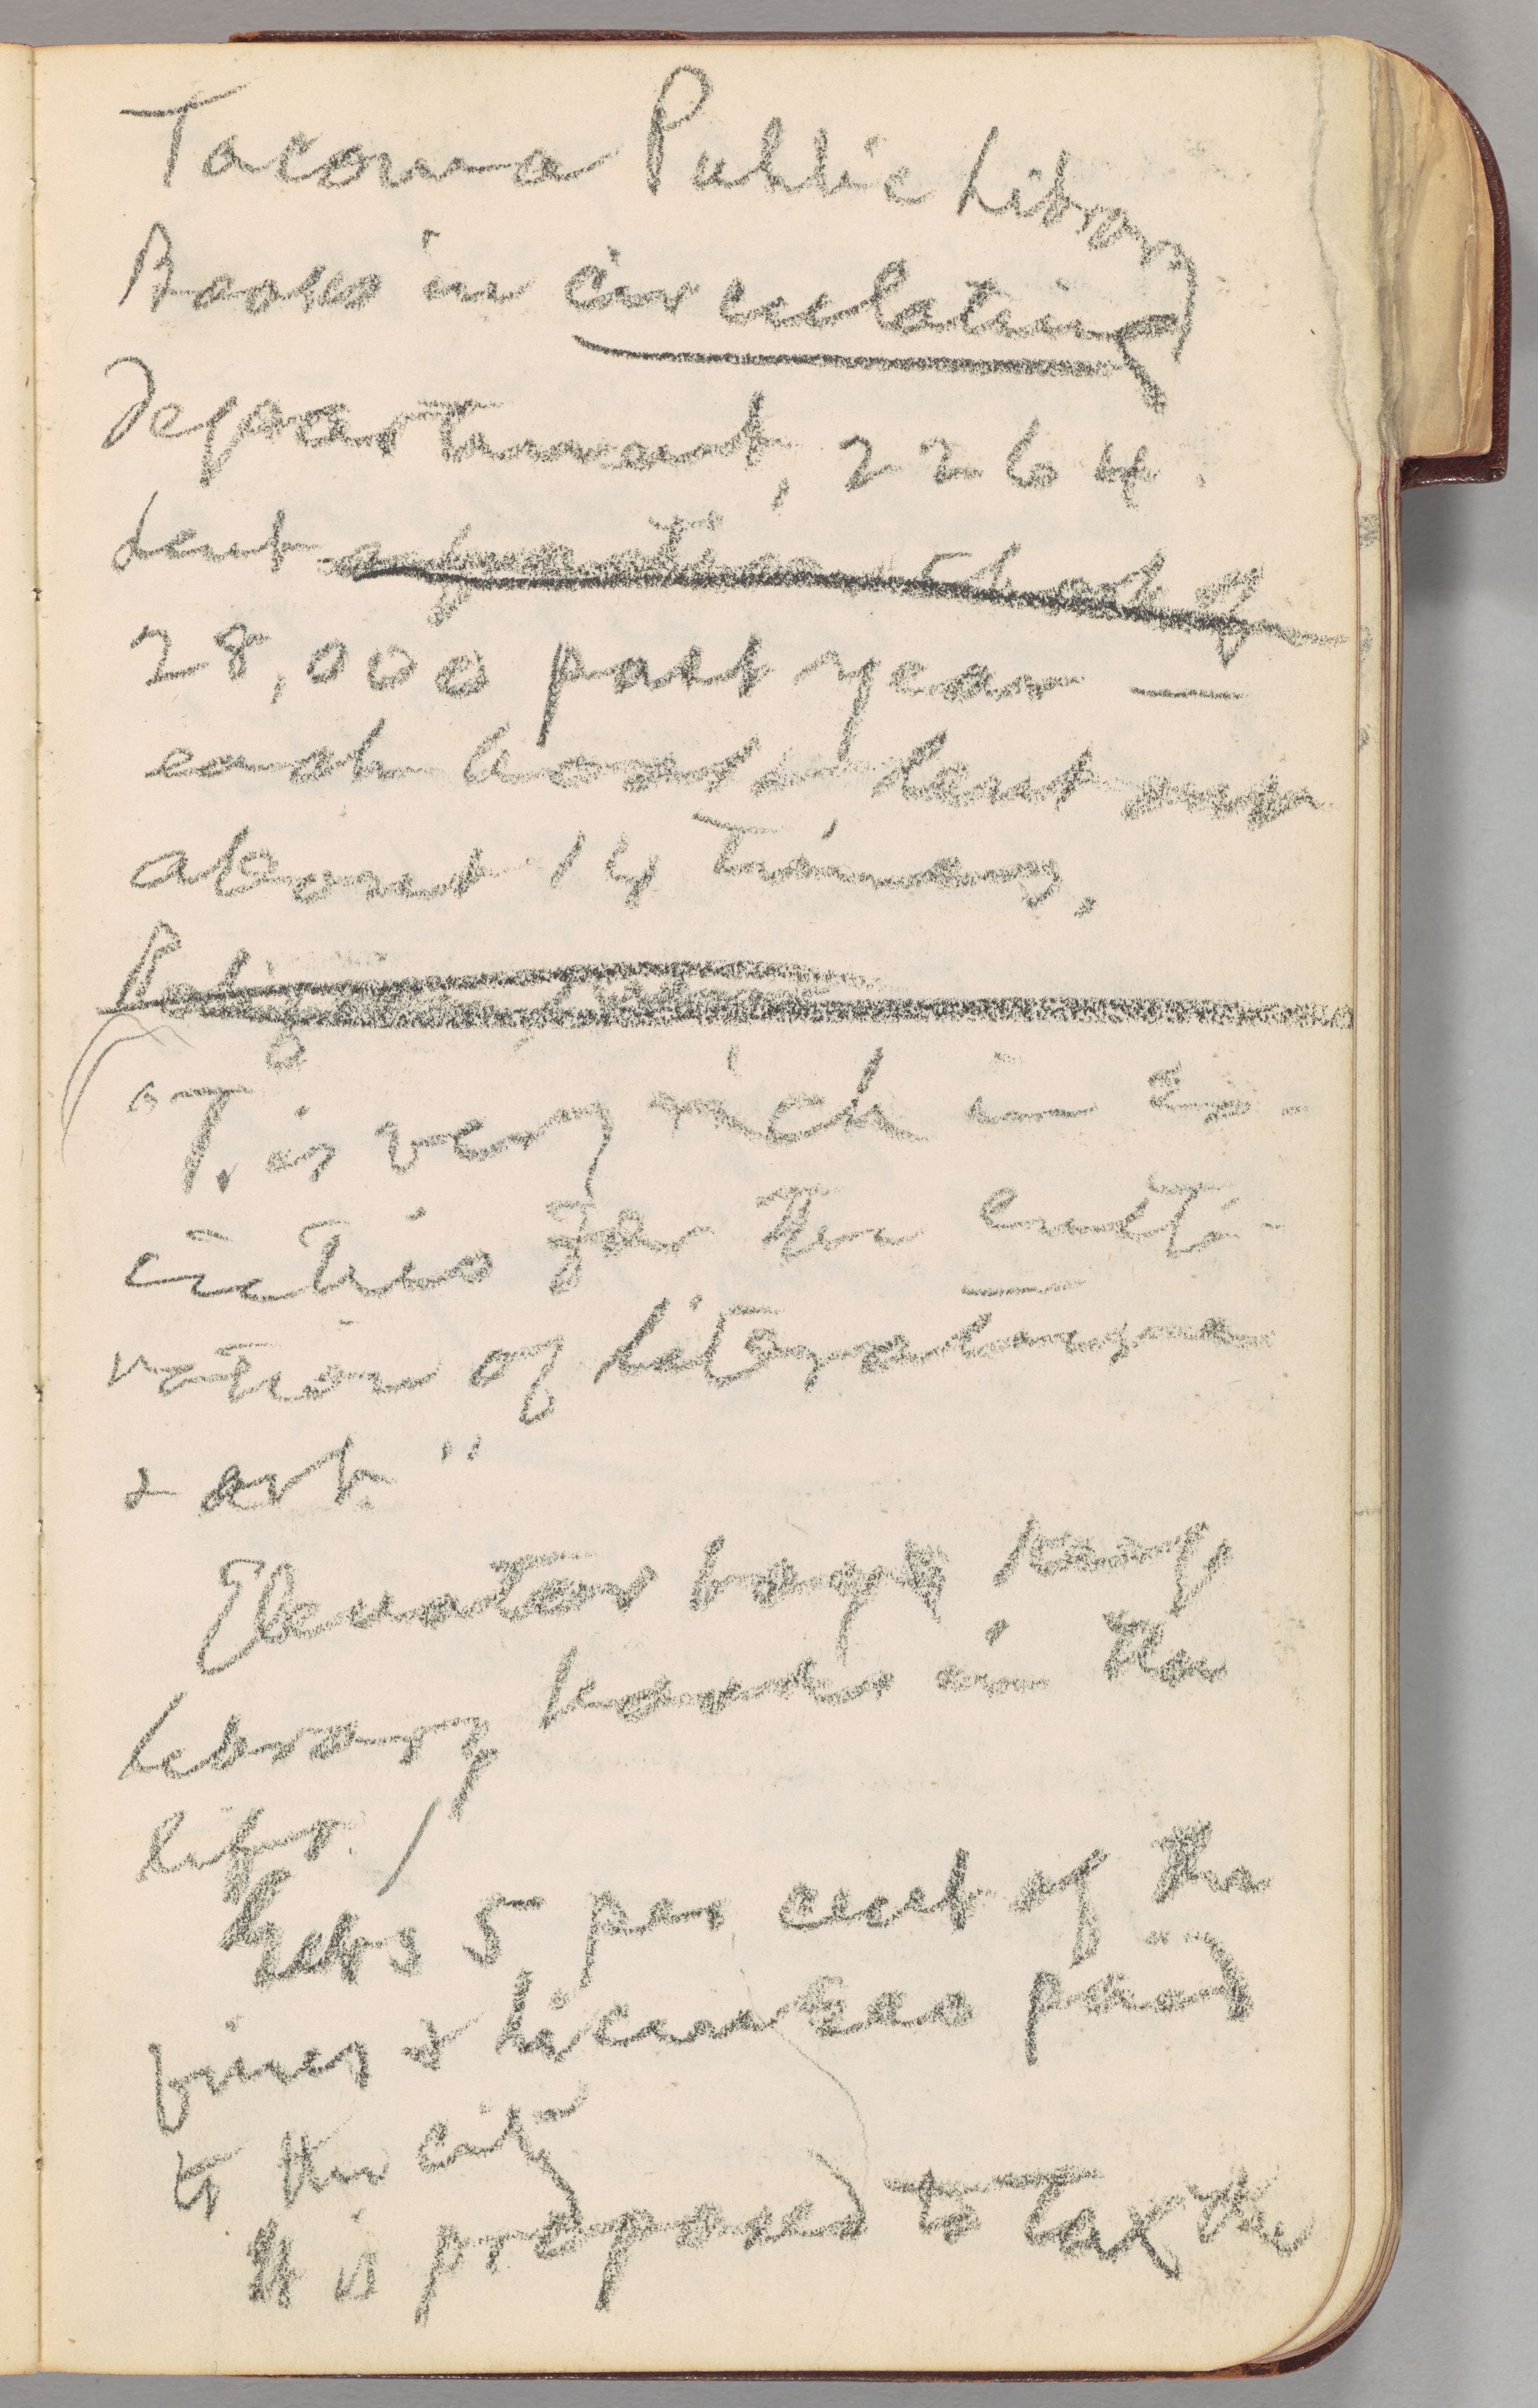 Tacoma Public Library
Books in circulating
Department, 2264.
Lent
28,000 past year —
each book is lent out
about 14 times.
"T. is very rich in so-
cieties for the culti-
vation of literature
& art."
Elevator boys keep
library books in the
lifts. /
Gets 5 per cent of the
fines & licenses paid
to the city
It is proposed to tax the